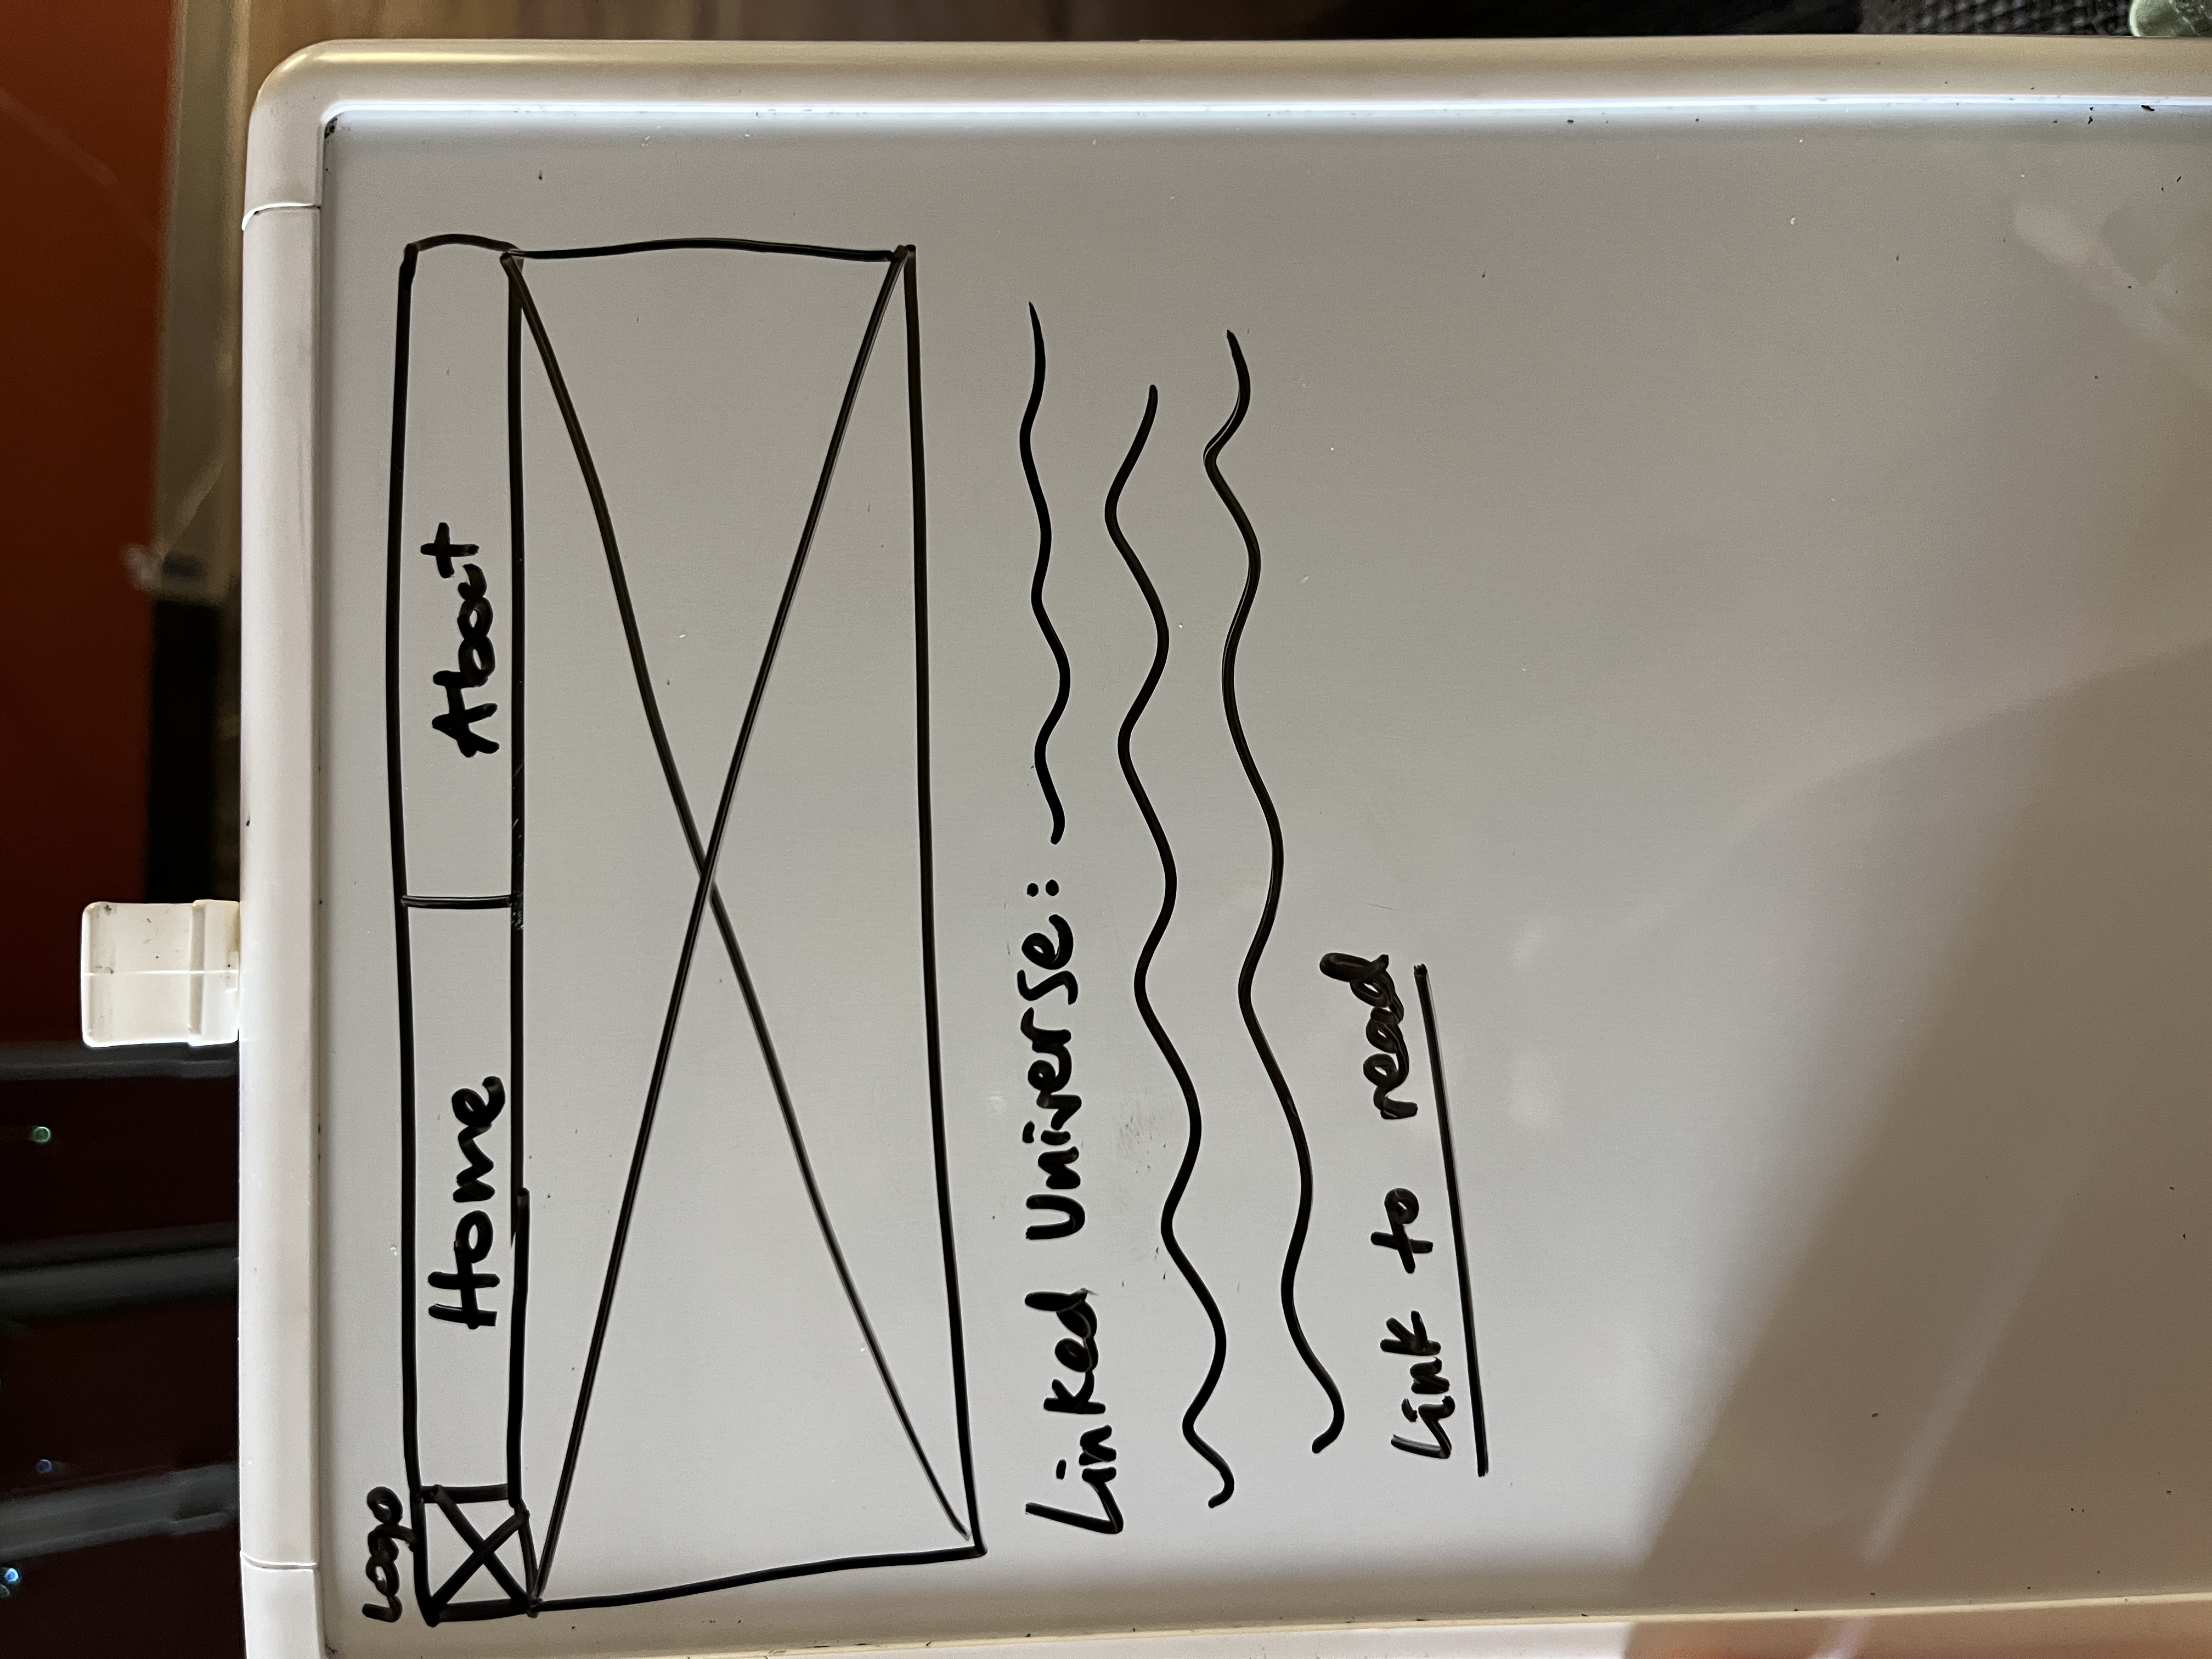 Logo
Home About
Linked Universe:
Link to read